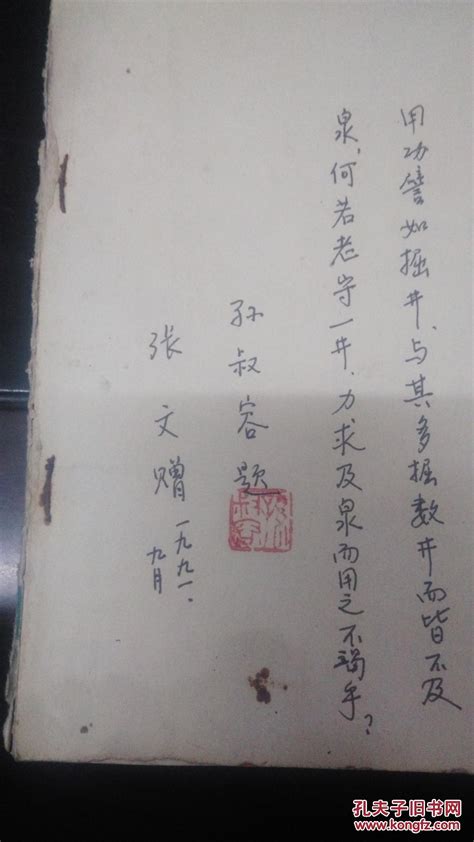 用功譬如掘井、与其多掘数井而皆不及
泉，何若老守一井、力求及泉而用之不竭乎？
孙叔容题
张文赠 一九九一、
九月
孔夫子旧书网
www.kongfz.com